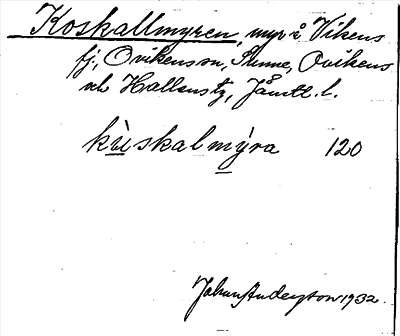 Koskallmyren, myr i Vikens
fj., Ovikens sn, Sunne, Ovikens
och Hallens tg, Jämtl. l.
kùskalmýra 120
Johan Anderzon 1932.